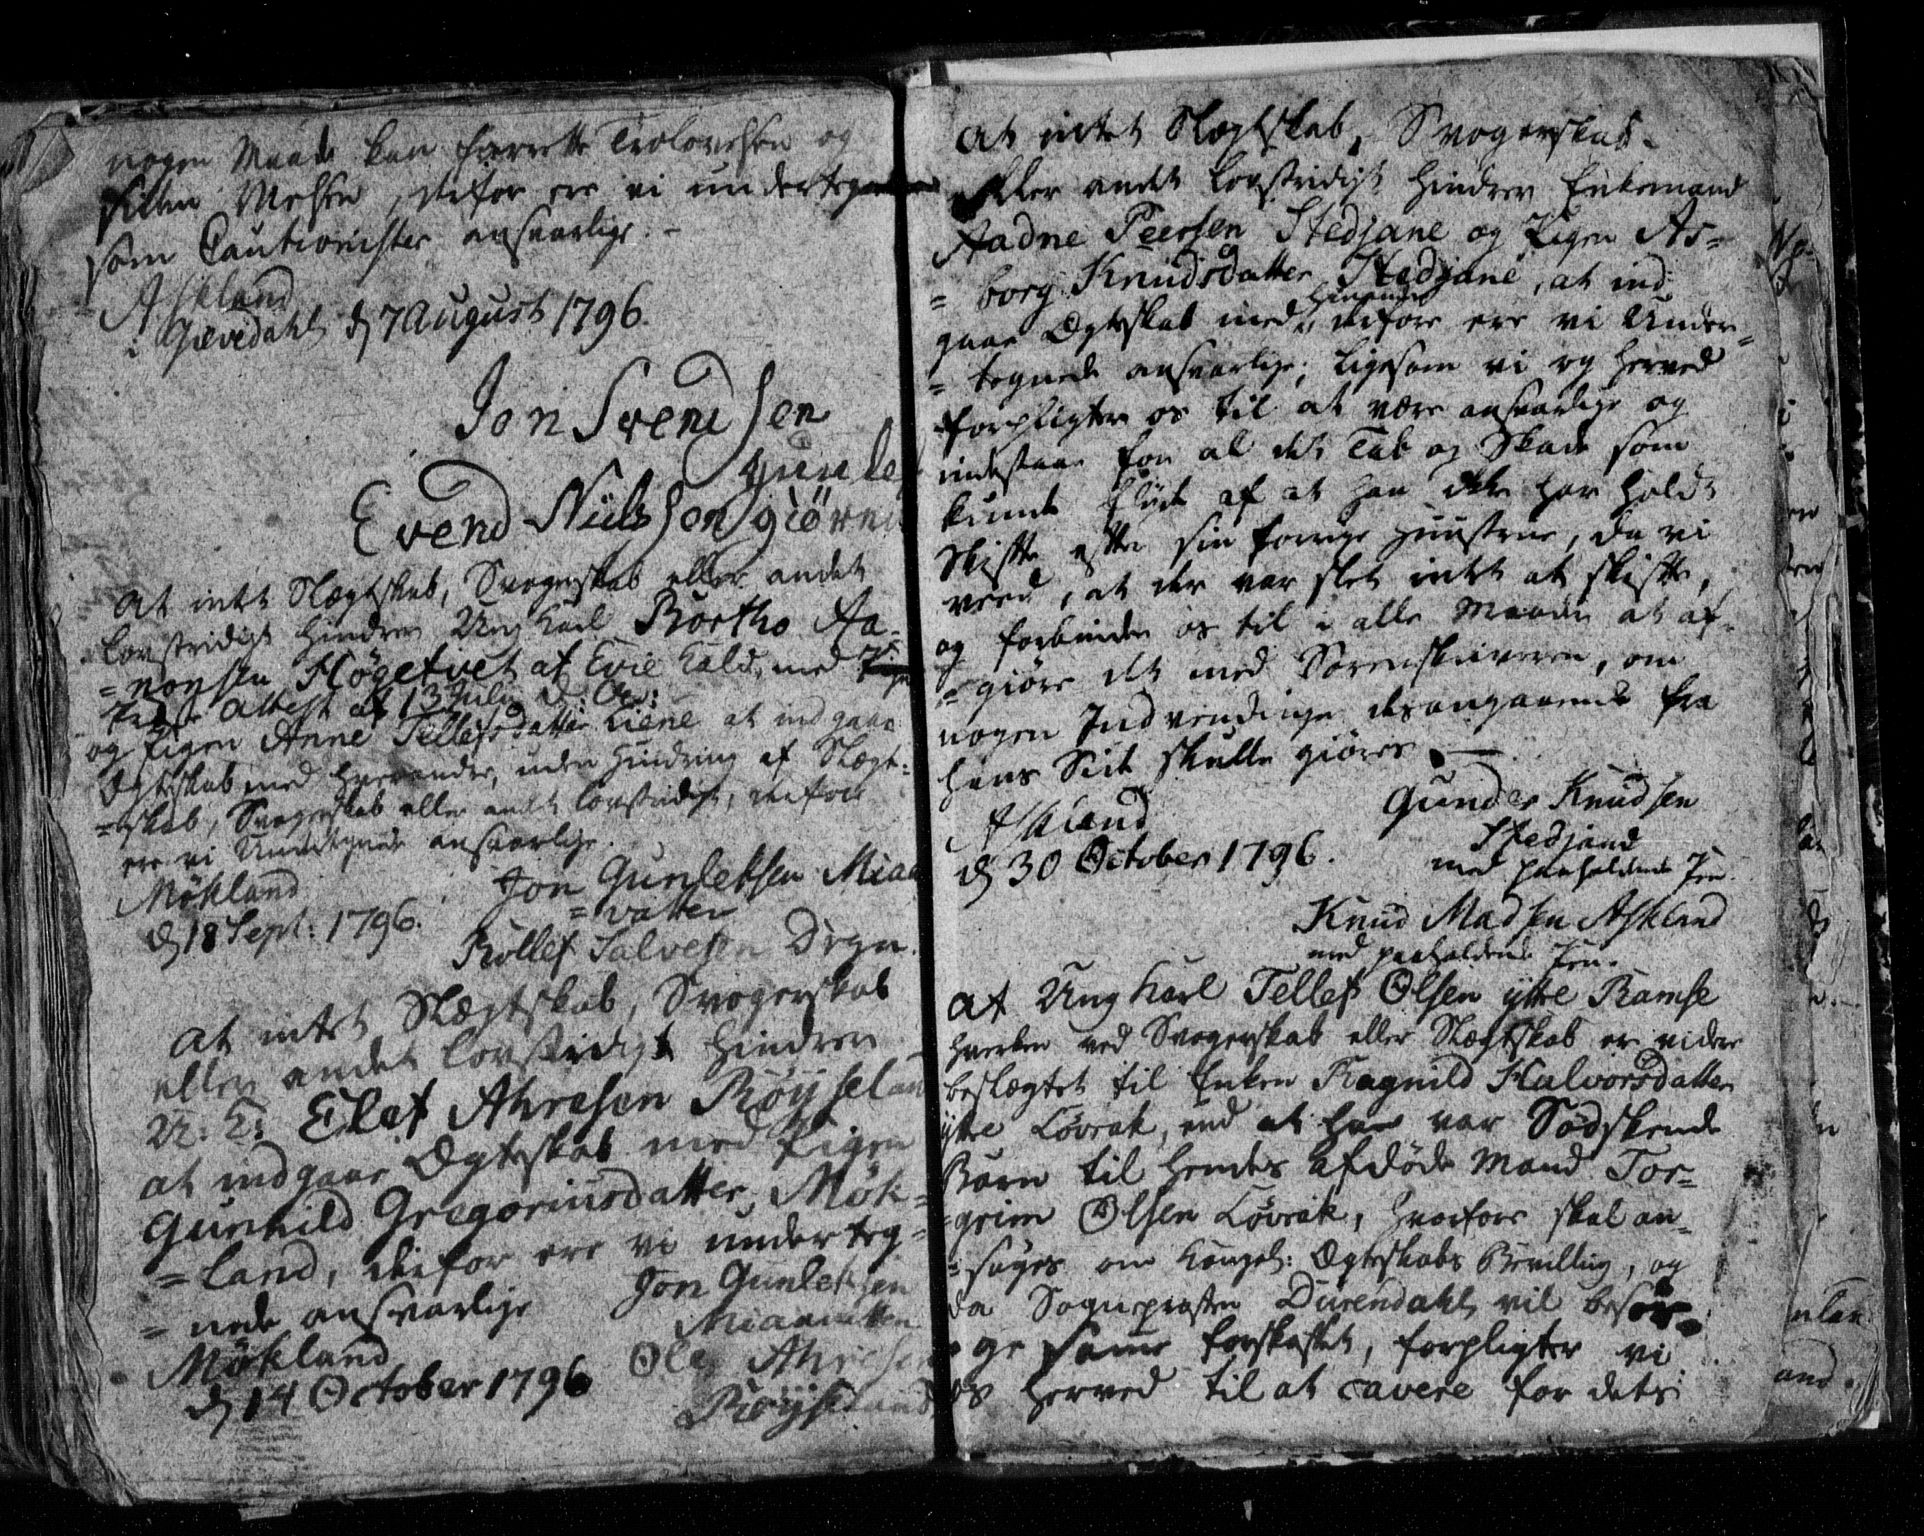 nogen Maade kan forrette Trolovelsen og
siden Vielsen, derfor ere vi undertegnede
som Cautionister ansvarlige. -
Askland
i Gievedahl d 7 August 1796.
Jon Svendsen
Evend Nielsen
At intet Slægtskab, Svogerskab eller andet
lovstridigt hindrer Ung Karl Aa-
=nonsen Høgetvet af Evie Kald, med
attest af 13 Julii
og Pigen Anne Tellefsdatter Liene at indgaae
Ægteskab med hverandre, uden Hindring af Slægt-
=skab, Svogerskab eller andet lovstridigt, derfor
ere vi Undertegnede ansvarlige.
Mökland
d 18 Sept: 1796.
Jon Gunleksen Miaa
=vatten
Rollef Salvesen
At intet Slægtskab, Svogerskab
eller andet lovstridigt hindrer
U: K: Elef Ahresen Röyseland
at indgaae Ægteskab med Pigen
Gunhild Gregoriusdatter Mök-
=land, derfor ere vi underteg-
=nede ansvarlige
Mökland
d 14 October 1796
Jon Gunleksen
Miaavatten
Ole Ahresen
Röyseland
At intet Slægtskab, Svogerskab
eller andet lovstridigt hindrer Enkemand
Aadne Peersen Stedjane og Pigen As-
=borg Knudsdatter Stedjane, at ind-
gaae Ægteskab med hinanden, derfore ere vi Under-
=tegnede ansvarlige; ligesom vi og herved
forpligter os til at være ansvarlige og
indestaae for al det Tab og Skade som
kunde flyde af at han ikke har holdt
Skifte efter sin forrige Huustrue, da vi
veed, at der var slet intet at skifte,
og forbinder os til i alle Maader at af-
=giöre det med Sorenskriveren, om
nogen Indvendinge desangaaende fra
hans Side skulle giöres. -
Askland
d 30 October 1796.
Gunder Knudsen
Stedjane
med paaholdende Pen.
Knud Madsen Askland
med paaholdende Pen.
At Ung Karl Tellef Olsen ytre Ramse
hverken ved Svogerskab eller Slægtskab er videre
beslægtet til Enken Ragnild Halvorsdatter
ytre Lövrak, end at han var Södskende
Börn til hendes afdöde Mand Tor-
=grim Olsen Lövrak, hvorfore skal an-
=söges om Kongel: Ægteskabs Bevilling, og
da Sognepræsten Durendahl vil besör-
=ge samme forskaffet, forpligter vi
os herved til at cavere for dets